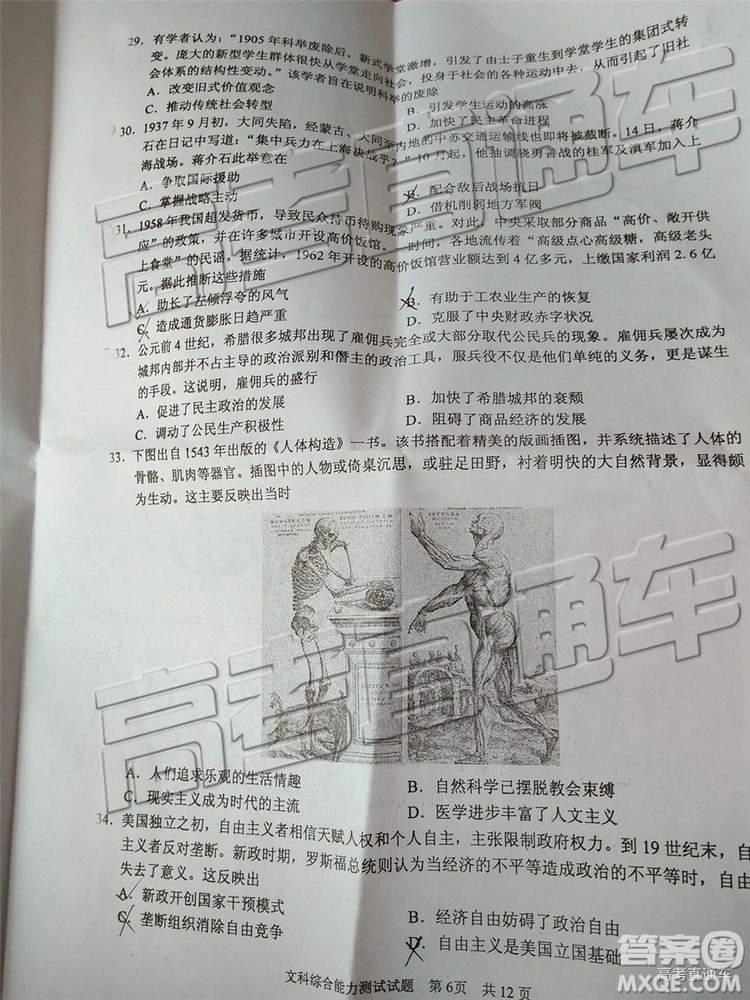 29. 有学者认为：“1905年科举废除后，新式学堂激增，引发了由士子童生到学堂学生的集团式转
变。庞大的新型学生群体很快从学堂走向社会，投身于社会的各种运动中去，从而引起了旧社
会体系的结构性变动。”该学者旨在说明科举的废除
A．改变旧式价值观念
B．引发学生运动的高涨
C．推动传统社会转型
D．加快了民主革命进程
30. 1937年9月初，大同失陷，经蒙古、大同至内地的中苏交通运输线也即将被截断。14日，蒋介
石在日记中写道：“集中兵力在上海决战乎？”10月起，他抽调骁勇善战的桂军及滇军加入上
海战场。蒋介石此举意在
A．争取国际援助
B．配合敌后战场抗日
C．掌握战略主动
D．借机削弱地方军阀
31. 1958年我国超发货币，导致民众持币待购现象严重。对此，中央采取部分商品“高价、敞开供
应”的政策，并在许多城市开设高价饭馆。一时间，各地流传着“高级点心高级糖，高级老头
上食堂”的民谣。据统计，1962年开设的高价饭馆营业额达到4亿多元，上缴国家利润2.6亿
元。据此推断这些措施
A．助长了左倾浮夸的风气
B．有助于工农业生产的恢复
C．造成通货膨胀日趋严重
D．克服了中央财政赤字状况
32. 公元前4世纪，希腊很多城邦出现了雇佣兵完全或大部分取代公民兵的现象。雇佣兵屡次成为
城邦内部并不占主导的政治派别和僭主的政治工具，服兵役不仅是他们单纯的义务，更是谋生
的手段。这说明，雇佣兵的盛行
A．促进了民主政治的发展
B．加快了希腊城邦的衰颓
C．调动了公民生产积极性
D．阻碍了商品经济的发展
33. 下图出自1543年出版的《人体构造》一书。该书搭配着精美的版画插图，并系统描述了人体的
骨骼、肌肉等器官。插图中的人物或倚桌沉思，或驻足田野，衬着明快的大自然背景，显得颇
为生动。这主要反映出当时
SECUNDA
A．人们追求乐观的生活情趣
B．自然科学已摆脱教会束缚
C．现实主义成为时代的主流
D．医学进步丰富了人文主义
34. 美国独立之初，自由主义者相信天赋人权和个人自主，主张限制政府权力。到19世纪末，自
主义者反对垄断。新政时期，罗斯福总统则认为当经济的不平等造成政治的不平等时，自
失去了意义。这反映出
A．新政开创国家干预模式
B．经济自由妨碍了政治自由
C．垄断组织消除自由竞争
D．自由主义是美国立国基础
文科综合能力测试试题 第6页 共12页
高考直通车
高考直通车
高考直通车
答案圈
MXQE.COM
高考直通车